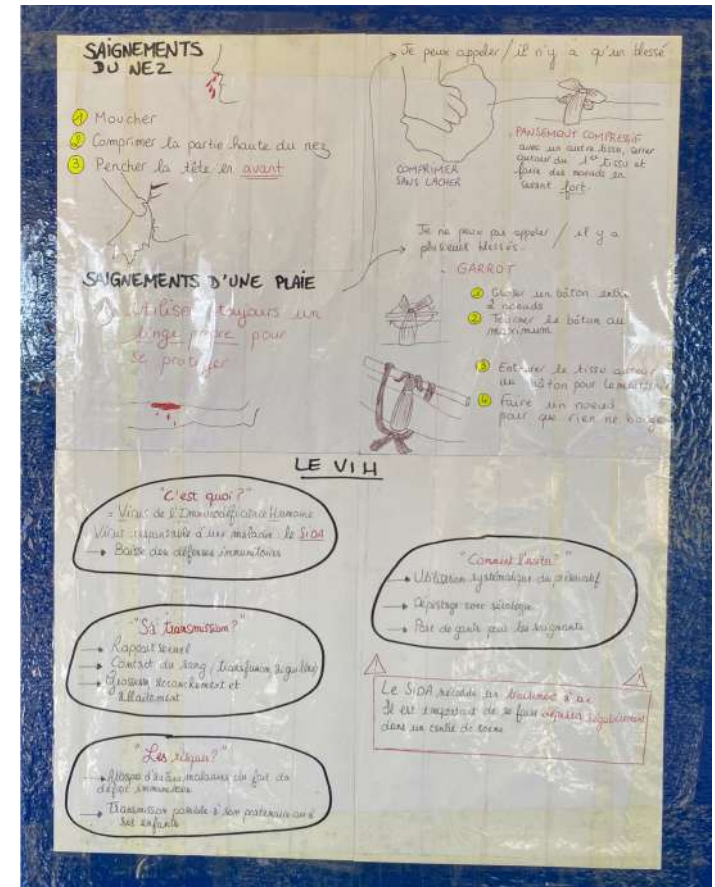 SAIGNEMENTS
DU NEZ
1 Moucher
2 Comprimer la partie haute du nez
3 Pencher la tête en avant
SAIGNEMENTS D'UNE PLAIE
Utiliser toujours un
linge propre pour
se protéger
Je peux appeler / il n'y a qu'un blessé
COMPRIMER
SANS LACHER
PANSEMENT COMPRESSIF
avec un autre tissu, serrer
autour du 1er tissu et
faire des noeuds en
serrant fort.
Je ne peux pas appeler / il y a
plusieurs blessés.
GARROT
1 Glisser un bâton entre
2 noeuds
2 Tourner le bâton au
maximum
3 Entourer le tissu autour
du bâton pour le maintenir
4 Faire un noeud
pour que rien ne bouge
LE VIH
"C'est quoi?"
= Virus de l'Immunodéficience Humaine
Virus responsable d'une maladie le SIDA
→ Baisse des défenses immunitaires
"Sa transmission?"
→ Rapport sexuel
→ Contact du sang (transfusion, aiguilles)
→ Grossesse, accouchement et
allaitement
"Les risques?"
→ d'autres maladies du fait du
déficit immunitaire
→ Transmission possible à son partenaire ou à
ses enfants
"Comment l'éviter?"
→ Utilisation systématique du préservatif
→ Dépistage avec sérologie
→ Port de gants pour les soignants
Le SIDA nécessite un traitement à vie
Il est important de se faire dépister régulièrement
dans un centre de soins